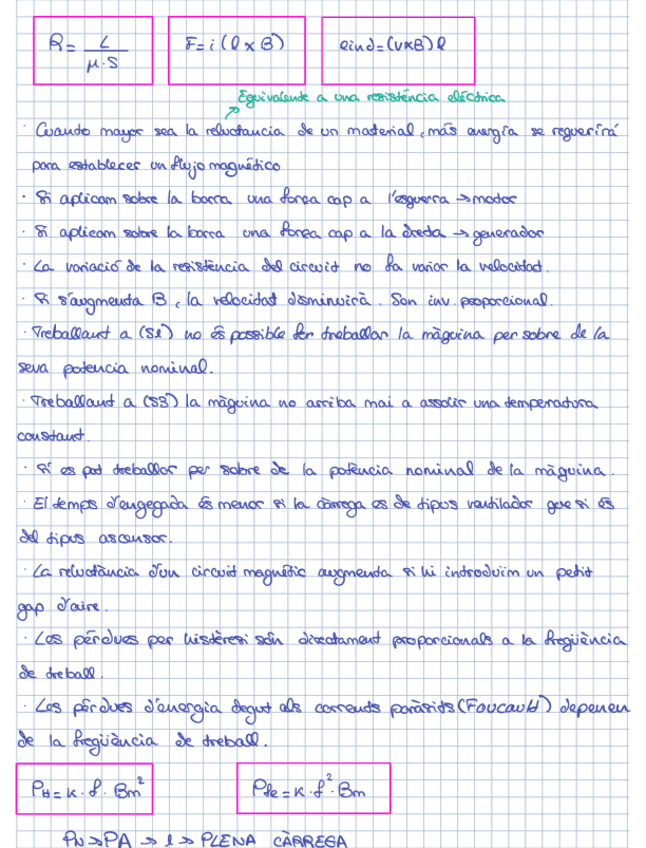 R = L / μ·S   F = i (l × B)   eind = (v×B) l
Equivalente a una resisténcia eléctrica
· Cuanto mayor sea la reluctancia de un material, más energía se requerirá
para establecer un flujo magnético
· Si aplicam sobre la barra una força cap a l'esquerra → motor
· Si aplicam sobre la barra una força cap a la dreta → generador
· La variació de la resistència del circuit no fa variar la velocitat.
· Si s'augmenta B, la velocitat disminuirà. Son inv. proporcional.
· Treballant a (S1) no és possible fer treballar la màquina per sobre de la
seva potencia nominal.
· Treballant a (S3) la màquina no arriba mai a assolir una temperatura
constant.
· Si es pot treballar per sobre de la potència nominal de la màquina.
· El temps d'engegada és menor si la càrrega es de tipus ventilador que si és
del tipus ascensor.
· La reluctància d'un circuit magnétic augmenta si hi introduim un petit
gap d'aire.
· Les pérdues per histèresi són directament proporcionals a la freqüència
de treball.
· Les pérdues d'energia degut als corrents paràsits (Foucault) depenen
de la freqüència de treball.
PH = K · f · Bm²   Pfe = K · f² · Bm
PN > PA → 1 → PLENA CÀRREGA